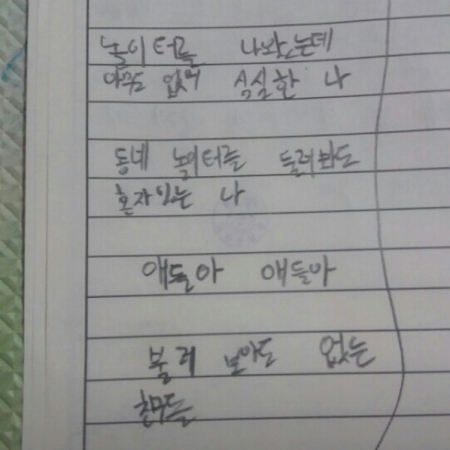 놀이터를 나왔는데
아무도 없어 심심한 나
동네 놀이터를 둘러봐도
혼자있는 나
얘들아 얘들아
불러 보아도 없는
친구들